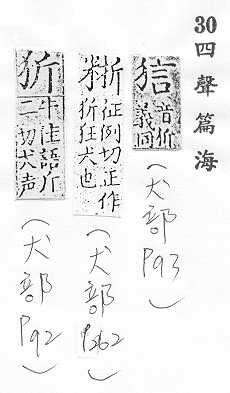 30 四聲篇海
狺 音㹞義同
（犬部 P93）
征例切正作狾狂犬也
（犬部 P262）
㹞 牛佳語斤二切犬声
（犬部 P92）